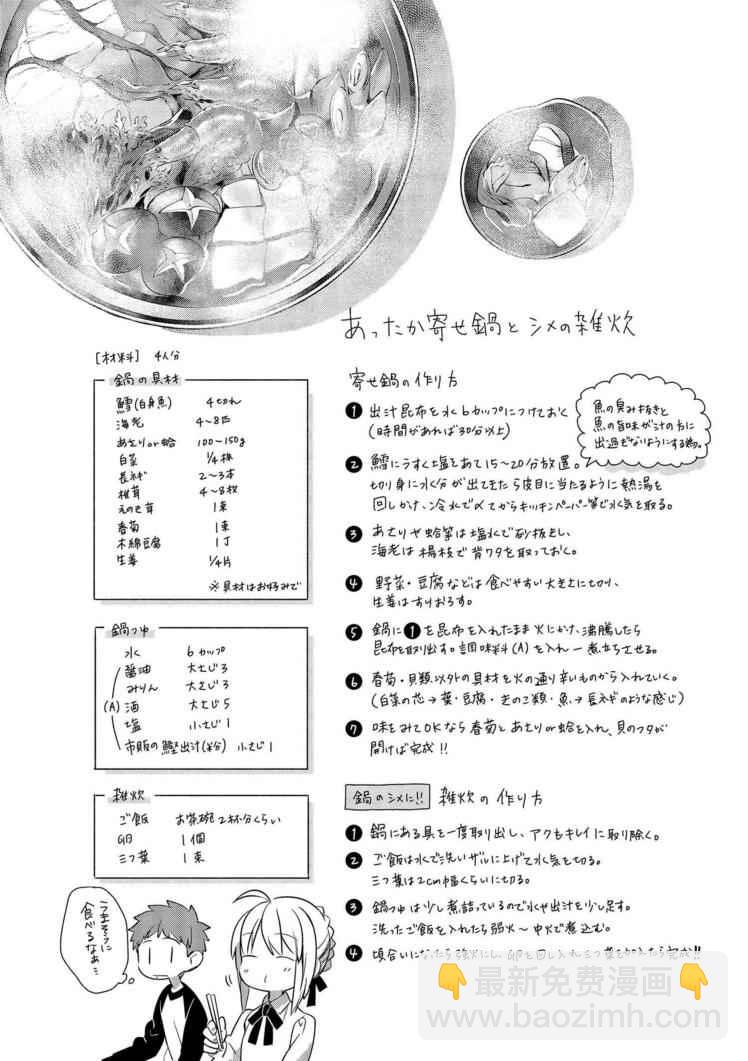 あったか寄せ鍋とシメの雑炊
[材料] 4人分
鍋の具材
鱈(白身魚) 4切れ
海老 4~8匹
あさりor蛤 100~150g
白菜 1/4株
長ネギ 2~3本
椎茸 4~8枚
えのき茸 1束
春菊 1束
木綿豆腐 1丁
生姜 1/4片
※具材はお好みで
鍋つゆ
水 6カップ
醤油 大さじ3
みりん 大さじ3
(A) 酒 大さじ5
塩 小さじ1
市販の鰹出汁(粉) 小さじ1
雑炊
ご飯 お茶碗2杯分くらい
卵 1個
三つ葉 1束
寄せ鍋の作り方
❶ 出汁昆布を水6カップにつけておく
(時間があれば30分以上)
❷ 鱈にうすく塩をあて15~20分放置。
切り身に水分が出てきたら皮目に当たるように熱湯を
回しかけ、冷水で〆てからキッチンペーパー等で水気を取る。
魚の臭み抜きと
魚の旨味が汁の方に
出過ぎないようにする為。
❸ あさりや蛤等は塩水で砂抜きし、
海老は楊枝で背ワタを取っておく。
❹ 野菜・豆腐などは食べやすい大きさに切り、
生姜はすりおろす。
❺ 鍋に❶を昆布を入れたまま火にかけ、沸騰したら
昆布を取出す。調味料(A)を入れ一煮立ちさせる。
❻ 春菊・貝類以外の具材を火の通り辛いものから入れていく。
(白菜の芯→葉・豆腐・きのこ類・魚→長ネギのような感じ)
❼ 味をみてOKなら春菊とあさりor蛤を入れ、貝のフタが
開けば完成!!
鍋のシメに!! 雑炊の作り方
❶ 鍋にある具を一度取り出し、アクもキレイに取り除く。
❷ ご飯は水で洗いザルに上げて水気を切る。
三つ葉は2cm幅くらいに切る。
❸ 鍋つゆは少し煮詰っているので水や出汁を少し足す。
洗ったご飯を入れたら弱火~中火で煮込む。
❹ 頃合いになったら強火にし、卵を回し入れ三つ葉をかえたら完成!!
うまそうに
食べるなぁ…
最新免费漫画
www.baozimh.com